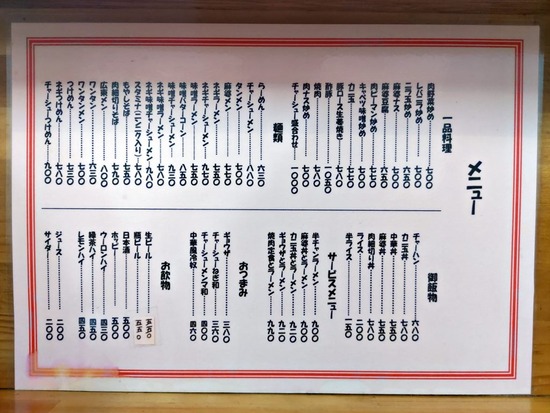 メニュー
一品料理
肉野菜炒め……七〇〇
レバニラ炒め……七〇〇
ニラ玉炒め……六五〇
麻婆ナス……七五〇
麻婆豆腐……六五〇
肉ピーマン炒め……
キャベツ味噌炒め……七八〇
カニ玉……七八〇
豚ロース生姜焼き……
酢豚……一〇五〇
焼肉……
肉ナス炒め……
チャーシュー盛合わせ……一〇〇〇
麺類
らーめん……六三〇
チャーシューメン……
タンメン……七五〇
麻婆メン……
ネギラーメン……七五〇
ネギチャーシューメン……九七〇
味噌ラーメン……七五〇
味噌バターコーン……八五〇
味噌チャーシューメン……九三〇
ネギ味噌ラーメン……八五〇
ネギ味噌チャーシューメン……九八〇
スタミナ(ニンニク入り)……七八〇
もやしそば……七五〇
肉細切りそば……八五〇
広東メン……八〇〇
ワンタン……六三〇
ワンタンメン……七八〇
つけめん……七三〇
ネギつけめん……
チャーシューつけめん……九〇〇
御飯物
チャーハン……六八〇
カニ玉丼……七八〇
中華丼……七五〇
麻婆丼……七五〇
肉細切り丼……七八〇
ライス……二〇〇
半ライス……一五〇
サービスメニュー
半チャンラーメン……九〇〇
麻婆丼とラーメン……九〇〇
カニ玉丼とラーメン……九二〇
ギョウザとラーメン……九二〇
焼肉定食とラーメン……九九〇
おつまみ
ギョウザ……三八〇
チャーシューねぎ和……三六〇
チャーシューメンマ和……四〇〇
中華風冷奴……四六〇
お飲物
生ビール……五五〇
瓶ビール……五五〇
日本酒……五〇〇
ホッピー……五〇〇
ウーロンハイ……四三〇
緑茶ハイ……四五〇
レモンハイ……四五〇
ジュース……二〇〇
サイダー……二〇〇